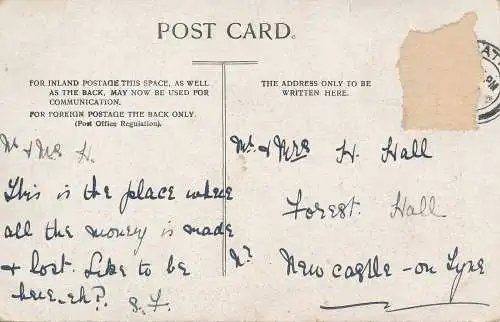 POST CARD.
FOR INLAND POSTAGE THIS SPACE, AS WELL
AS THE BACK, MAY NOW BE USED FOR
COMMUNICATION.
FOR FOREIGN POSTAGE THE BACK ONLY.
(Post Office Regulation).
THE ADDRESS ONLY TO BE
WRITTEN HERE.
Mr & Mrs H.
This is the place where
all the money is made
& lost. Like to be
here, eh?
Mr & Mrs H. Hall
Forest Hall
Nr
Newcastle-on Tyne
PM